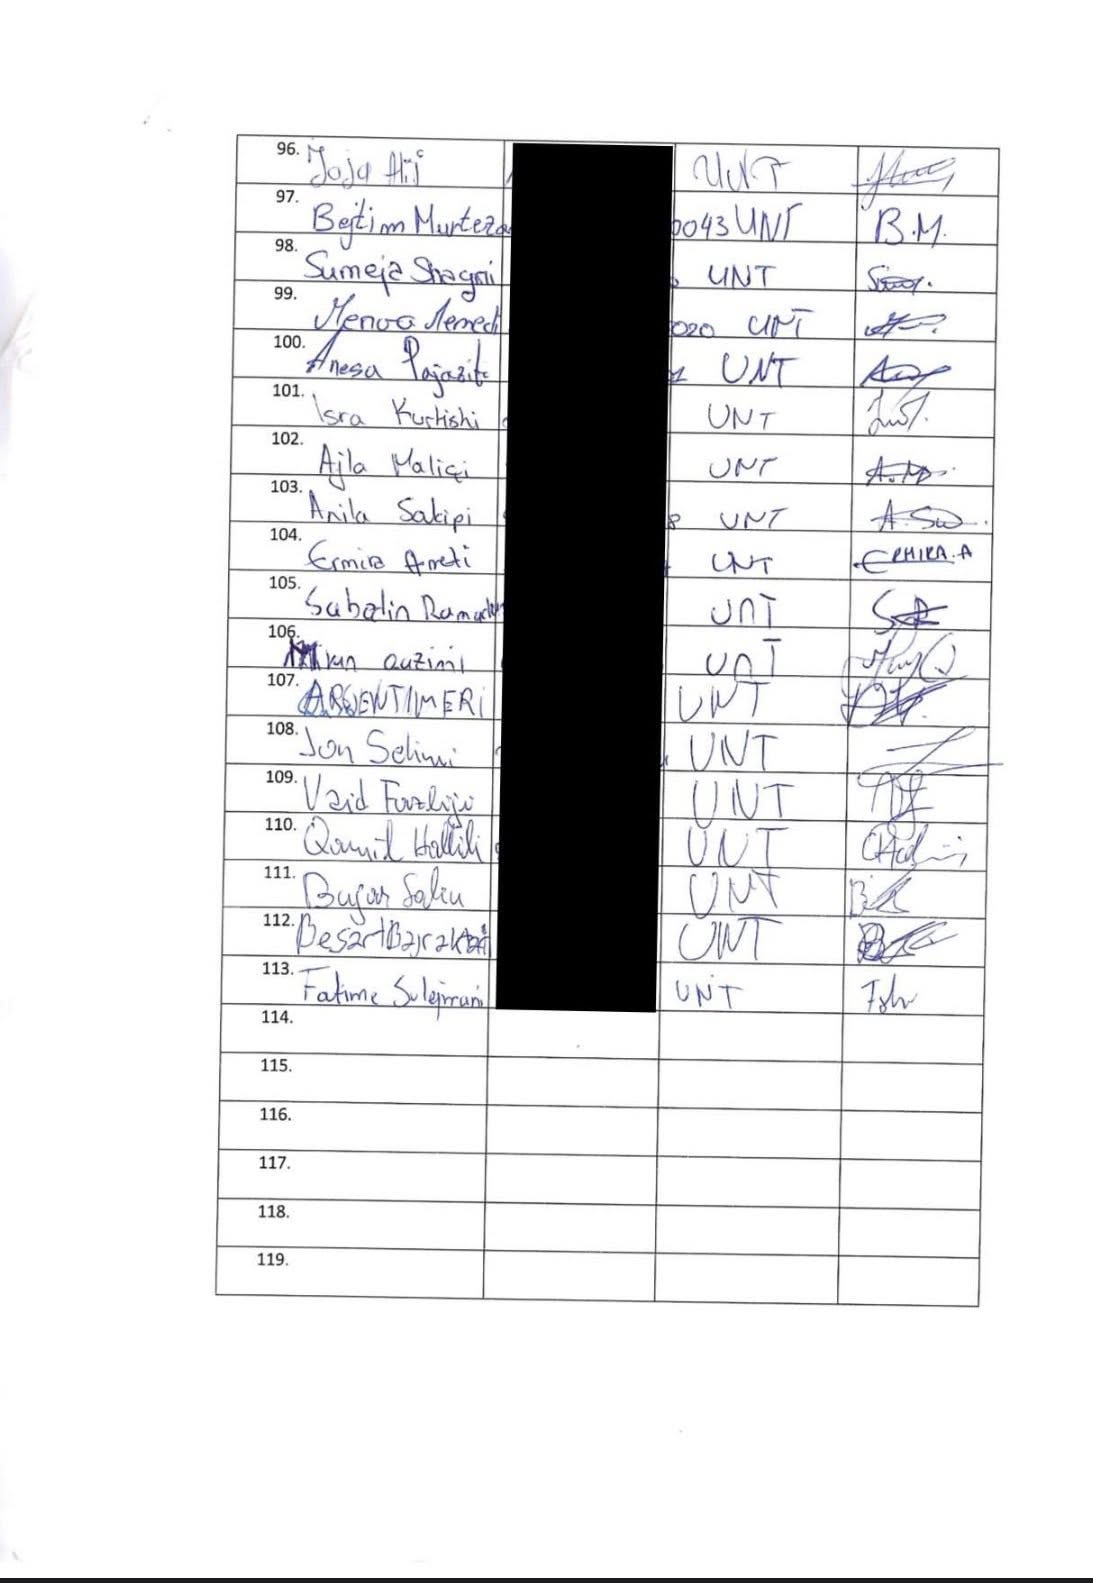 96. Jaja Alij UNT
97. Bejtim Murteza 0043 UNT B.M.
98. Sumeja Shaqiri UNT
99. Memedi 020 UNT
100. Anesa Pajaziti UNT
101. Isra Kurtishi UNT
102. Ajla Maliqi UNT A.M.
103. Anila Sakipi 8 UNT
104. Ermira Ameti UNT ERMIRA.A
105. Sabalin Ramad UNT
106. UNT
107. ARGJENT IMERI UNT
108. Jon Selimi UNT
109. Vaid Fazliji UNT
110. Qamil Halili UNT
111. Bujar Saliu UNT
112. Besart Bajraktari UNT
113. Fatime Sulejmani UNT
114.
115.
116.
117.
118.
119.